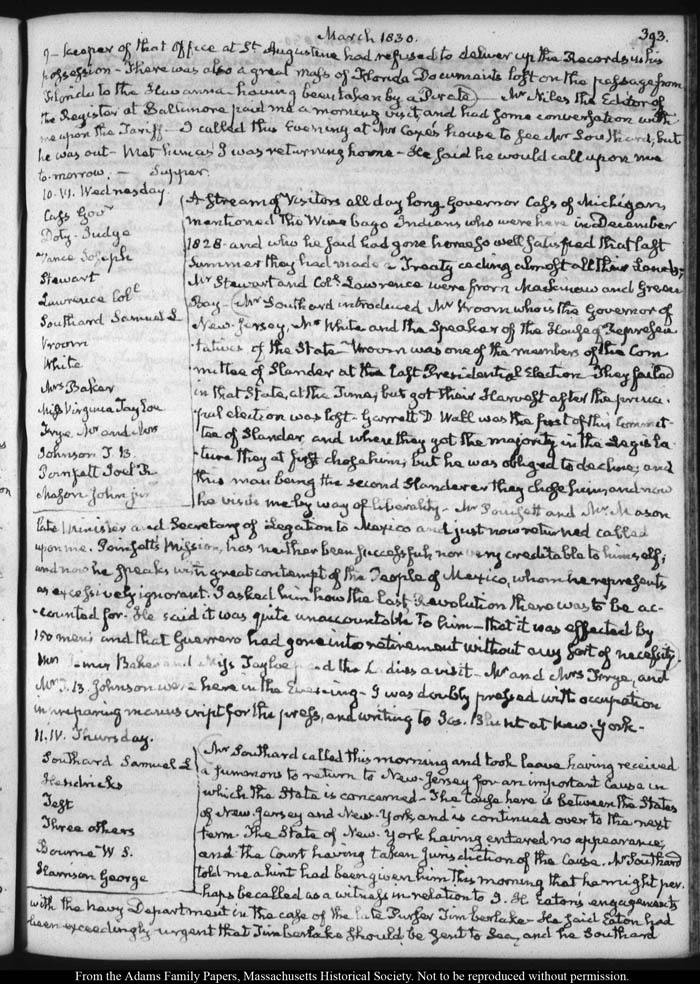 March 1830.
393.
9- keeper of that Office at St. Augustine had refused to deliver up the Records in his
possession- There was also a great mass of Florida Documents lost on the passage from
Florida to the Havanna- having been taken by a Pirate- Mr Niles the Editor of
the Register at Baltimore paid me a morning visit, and had some conversation with
me upon the Tariff- I called this Evening at Mr Coxe's house to see Mr Southard; but
he was out- Met him as I was returning home- He said he would call upon me
to-morrow.- Supper.
10. VI. Wednesday.
Cass Govr
Doty. Judge
Vance Joseph
Stewart
Lawrence Coll
Southard Samuel L
Vroom
White
Mrs Baker
Miss Virginia Tayloe
Frye Mr and Mrs
Johnson T. B.
Poinsett Joel R
Mason John jr
A Stream of Visitors all day long. Governor Cass of Michigan,
mentioned the Winebago Indians who were here in December
1828. and who he said had gone home so well satisfied that last
Summer they had made a Treaty ceding almost all their Lands;
Mr Stewart and Coll Lawrence were from Mackinaw and Green
Bay- Mr Southard introduced Mr Vroom who is the Governor of
New-Jersey, Mr White and the Speaker of the House of Represen
tatives of the State- Vroom was one of the members of the Com
mittee of Slander at the last Presidential Election. They failed
in that State, at the Time; but got their Harvest after the princi-
pal election was lost- Garrett D. Wall was the first of this Commit-
tee of Slander, and where they got the majority in the Legisla-
ture they at first chose him; but he was obliged to decline; and
this man being the second Slanderer they chose him; and now
he visits me by way of liberality- Mr Poinsett and Mr Mason
late Minister and Secretary of Legation to Mexico and just now returned called
upon me. Poinsett's Mission, has neither been successful, nor very creditable to himself;
and now he speaks with great contempt of the People of Mexico, whom he represents
as excessively ignorant. I asked him how the last Revolution there was to be ac-
-counted for- He said it was quite unaccountable to him- that it was effected by
150 men; and that Guerrero had gone into retirement without any sort of necessity.
Mrs Baker and Miss Tayloe paid the Ladies a visit- Mr and Mrs Frye, and
Mr T. B. Johnson were here in the Evening- I was doubly pressed with occupation
in preparing manuscript for the press, and writing to Jos. Blunt at New-York-
11. IV. Thursday.
Southard Samuel L
Hendricks
Test
Three others
Bourne W S.
Harrison George
Mr Southard called this morning and took leave having received
a summons to return to New-Jersey for an important Cause in
which the State is concerned- The Cause here is between the States
of New-Jersey and New-York, and is continued over to the next
term. The State of New-York having entered no appearance,
and the Court having taken Jurisdiction of the Cause. Mr Southard
told me a hint had been given him this morning that he might per-
haps be called as a witness in relation to J. H. Eaton's engagements
with the Navy Department in the case of the late Purser Timberlake- He said Eaton had
been exceedingly urgent that Timberlake should be sent to Sea, and he Southard
From the Adams Family Papers, Massachusetts Historical Society. Not to be reproduced without permission.